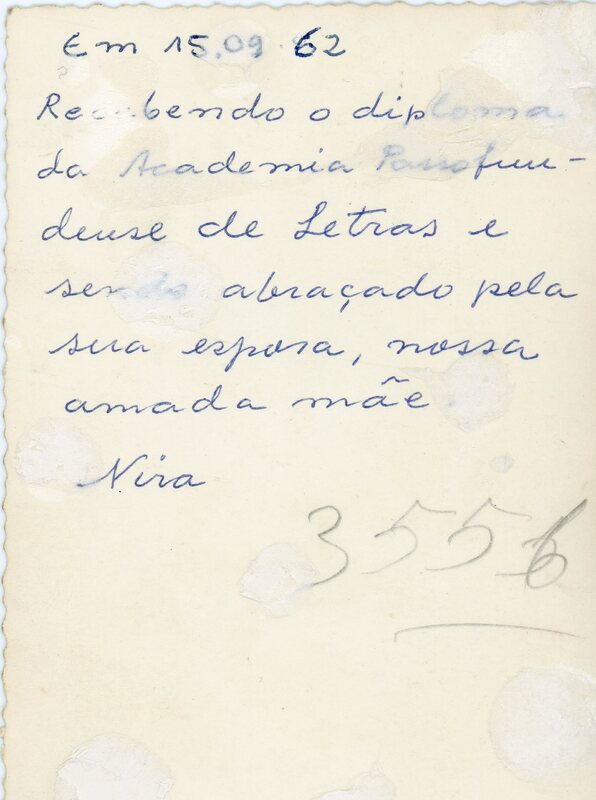 Em 15.09.62
Recebendo o diploma
da Academia Passofun-
dense de Letras e
sendo abraçado pela
sua esposa, nossa
amada mãe
Nira
3556